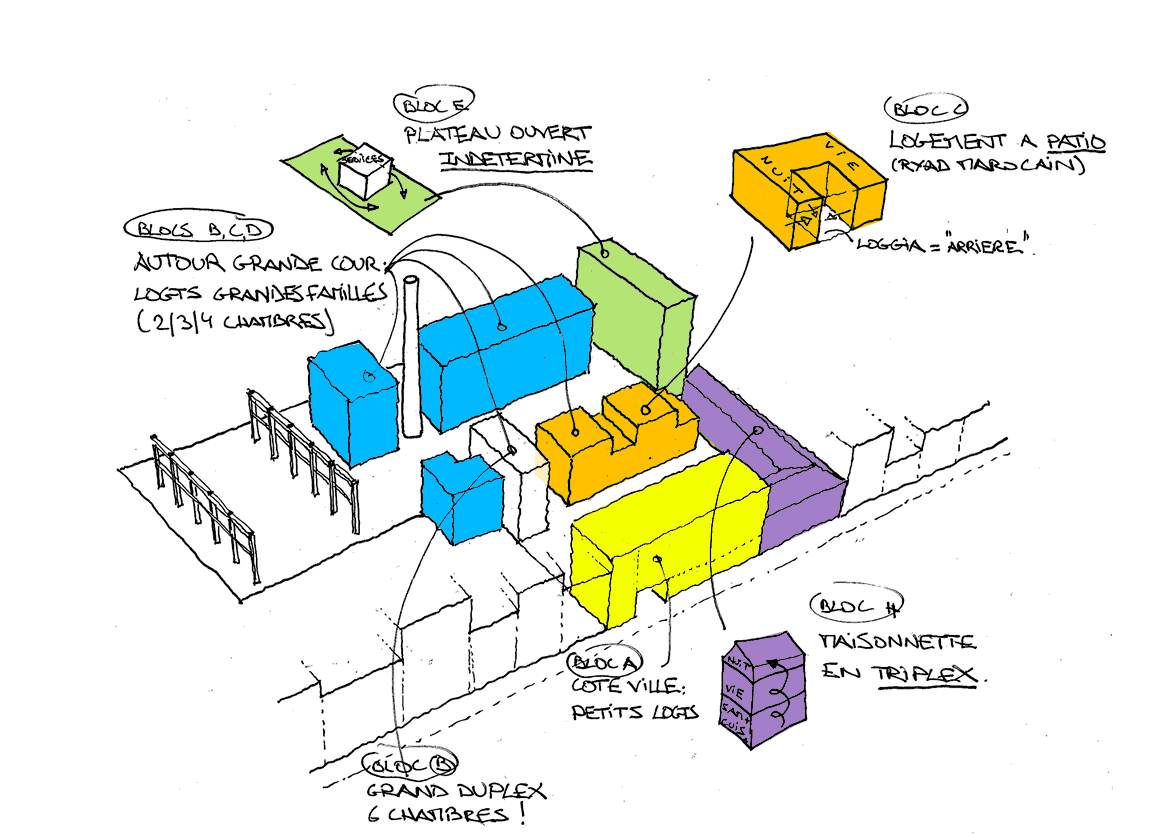 BLOC E
PLATEAU OUVERT
INDETERMINE
SERVICES
BLOC C
LOGEMENT A PATIO
(RYAD MAROCAIN)
VIE
NUIT
LOGGIA = "ARRIERE".
BLOCS B, C, D
AUTOUR GRANDE COUR:
LOGTS GRANDES FAMILLES
(2/3/4 CHAMBRES)
BLOC H
MAISONNETTE
EN TRIPLEX.
NUIT
VIE
SAM+
CUIS.
BLOC A
COTE VILLE:
PETITS LOGTS
BLOC B
GRAND DUPLEX
6 CHAMBRES!